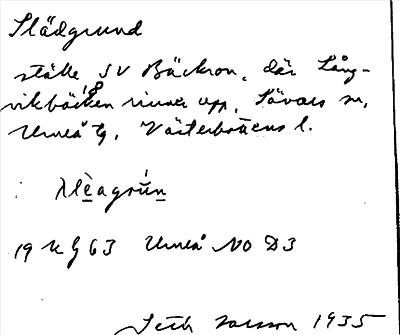 Slädgrund
ställe SV Bäckron, där Lång-
vikbäcken rinner upp, Sävars sn,
Umeå tg, Västerbottens l.
slèagrún
19 K g 63 Umeå NO D3
Seth Larsson 1935